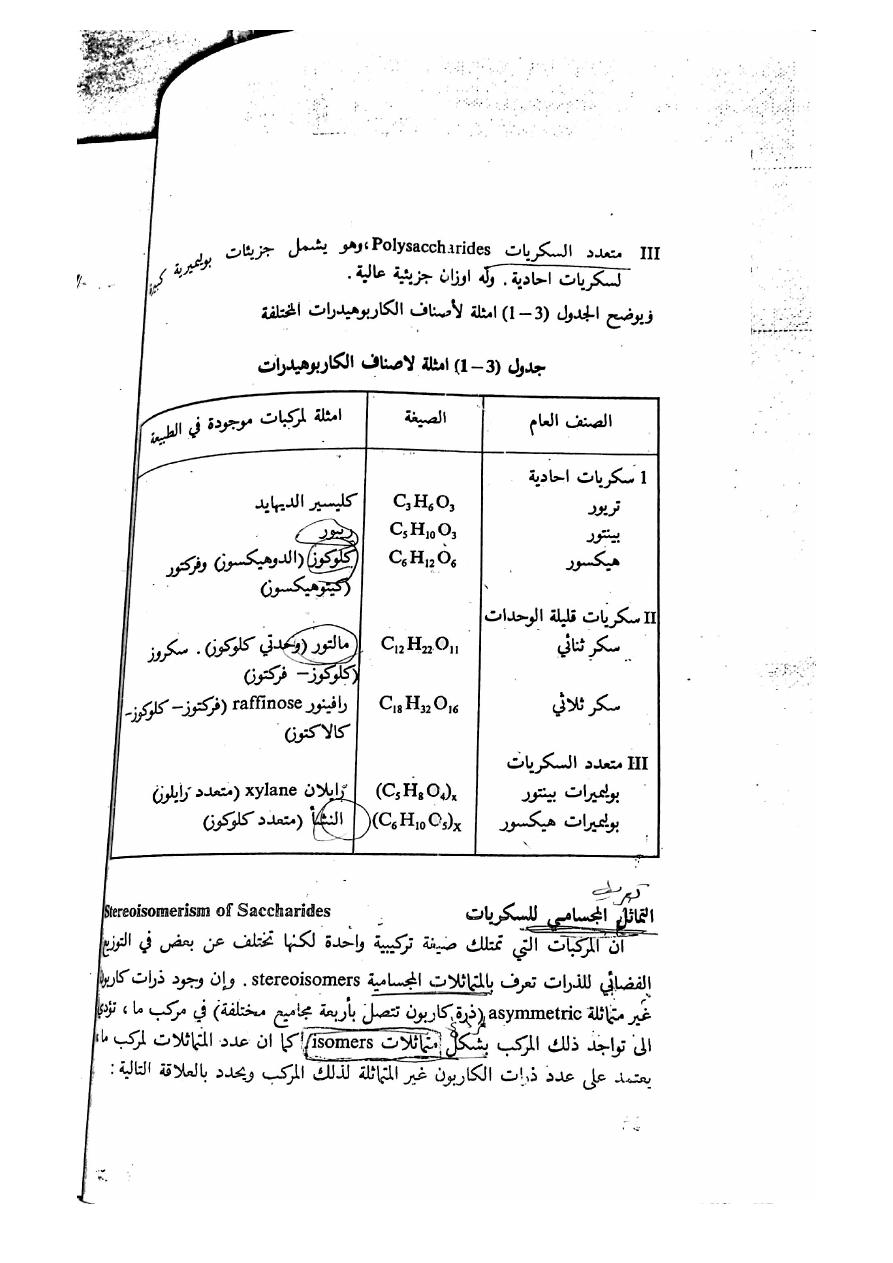 III متعدد السكريات Polysaccharides، وهو يشمل جزيئات بوليميرية كبيرة
لسكريات احادية. وله اوزان جزيئية عالية.
ويوضح الجدول (3-1) امثلة لأصناف الكاربوهيدرات المختلفة
جدول (3-1) امثلة لاصناف الكاربوهيدرات
الصنف العام الصيغة امثلة لمركبات موجودة في الطبيعة
1 سكريات احادية
تريوز C3H6O3 كليسير الديهايد
بينتوز C5H10O3 ريبوز
هيكسوز C6H12O6 كلوكوز (الدوهيكسوز) وفركتوز
(كيتوهيكسوز)
II سكريات قليلة الوحدات
سكر ثنائي C12H22O11 مالتوز (وحدتي كلوكوز). سكروز
(كلوكوز- فركتوز)
سكر ثلاثي C18H32O16 رافينوز raffinose (فركتوز- كلوكوز-
كالاكتوز)
III متعدد السكريات
بوليميرات بينتوز (C5H8O4)x زايلان xylane (متعدد زايلوز)
بوليميرات هيكسوز (C6H10O5)X النشأ (متعدد كلوكوز)
تعريف
التماثل المجسامي للسكريات Stereoisomerism of Saccharides
ان المركبات التي تمتلك صيغة تركيبية واحدة لكنها تختلف عن بعض في التوزيع
الفضائي للذرات تعرف بالمتماثلات المجسامية stereoisomers. وإن وجود ذرات كاربون
غير متماثلة asymmetric (ذرة كاربون تتصل بأربعة مجاميع مختلفة) في مركب ما، تؤدي
الى تواجد ذلك المركب بشكل متماثلات isomers كما ان عدد المتماثلات لمركب ما،
يعتمد على عدد ذرات الكاربون غير المتماثلة لذلك المركب ويحدد بالعلاقة التالية: